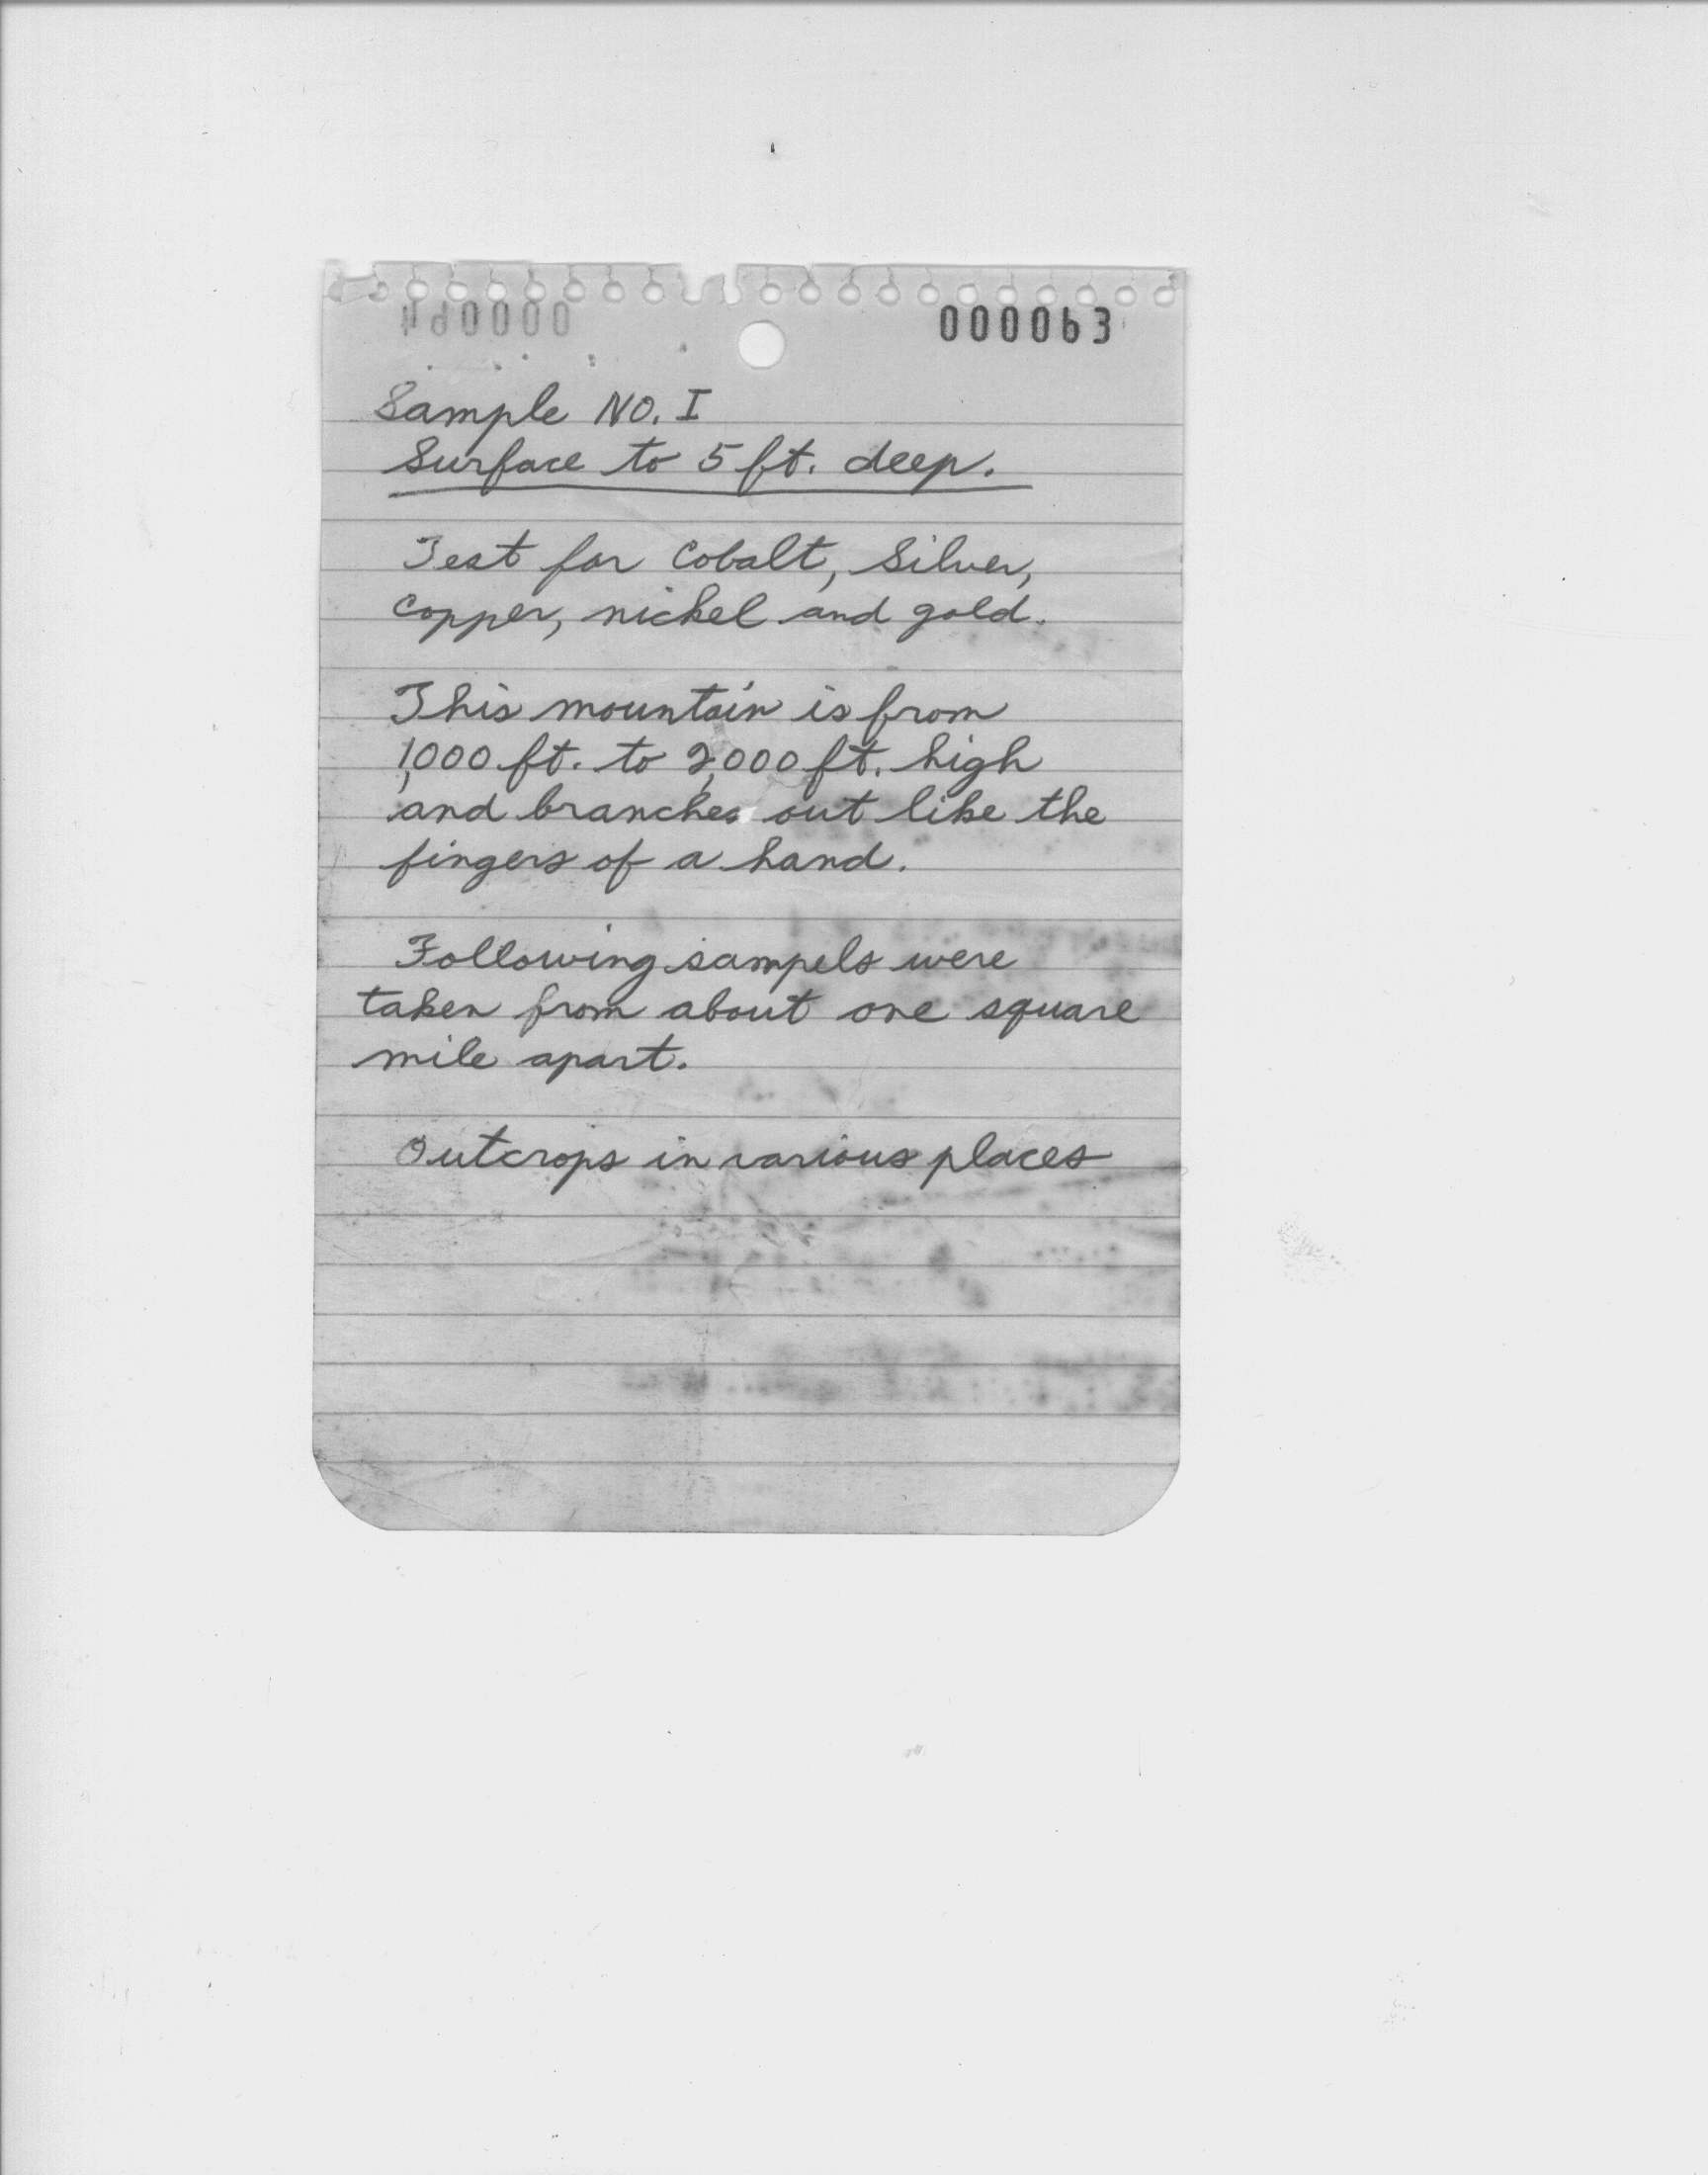 000063
Sample NO. I
Surface to 5 ft. deep.
Test for Cobalt, Silver,
Copper, nickel and gold.
This mountain is from
1,000 ft. to 2,000 ft. high
and branches out like the
fingers of a hand.
Following sampels were
taken from about one square
mile apart.
Outcrops in various places